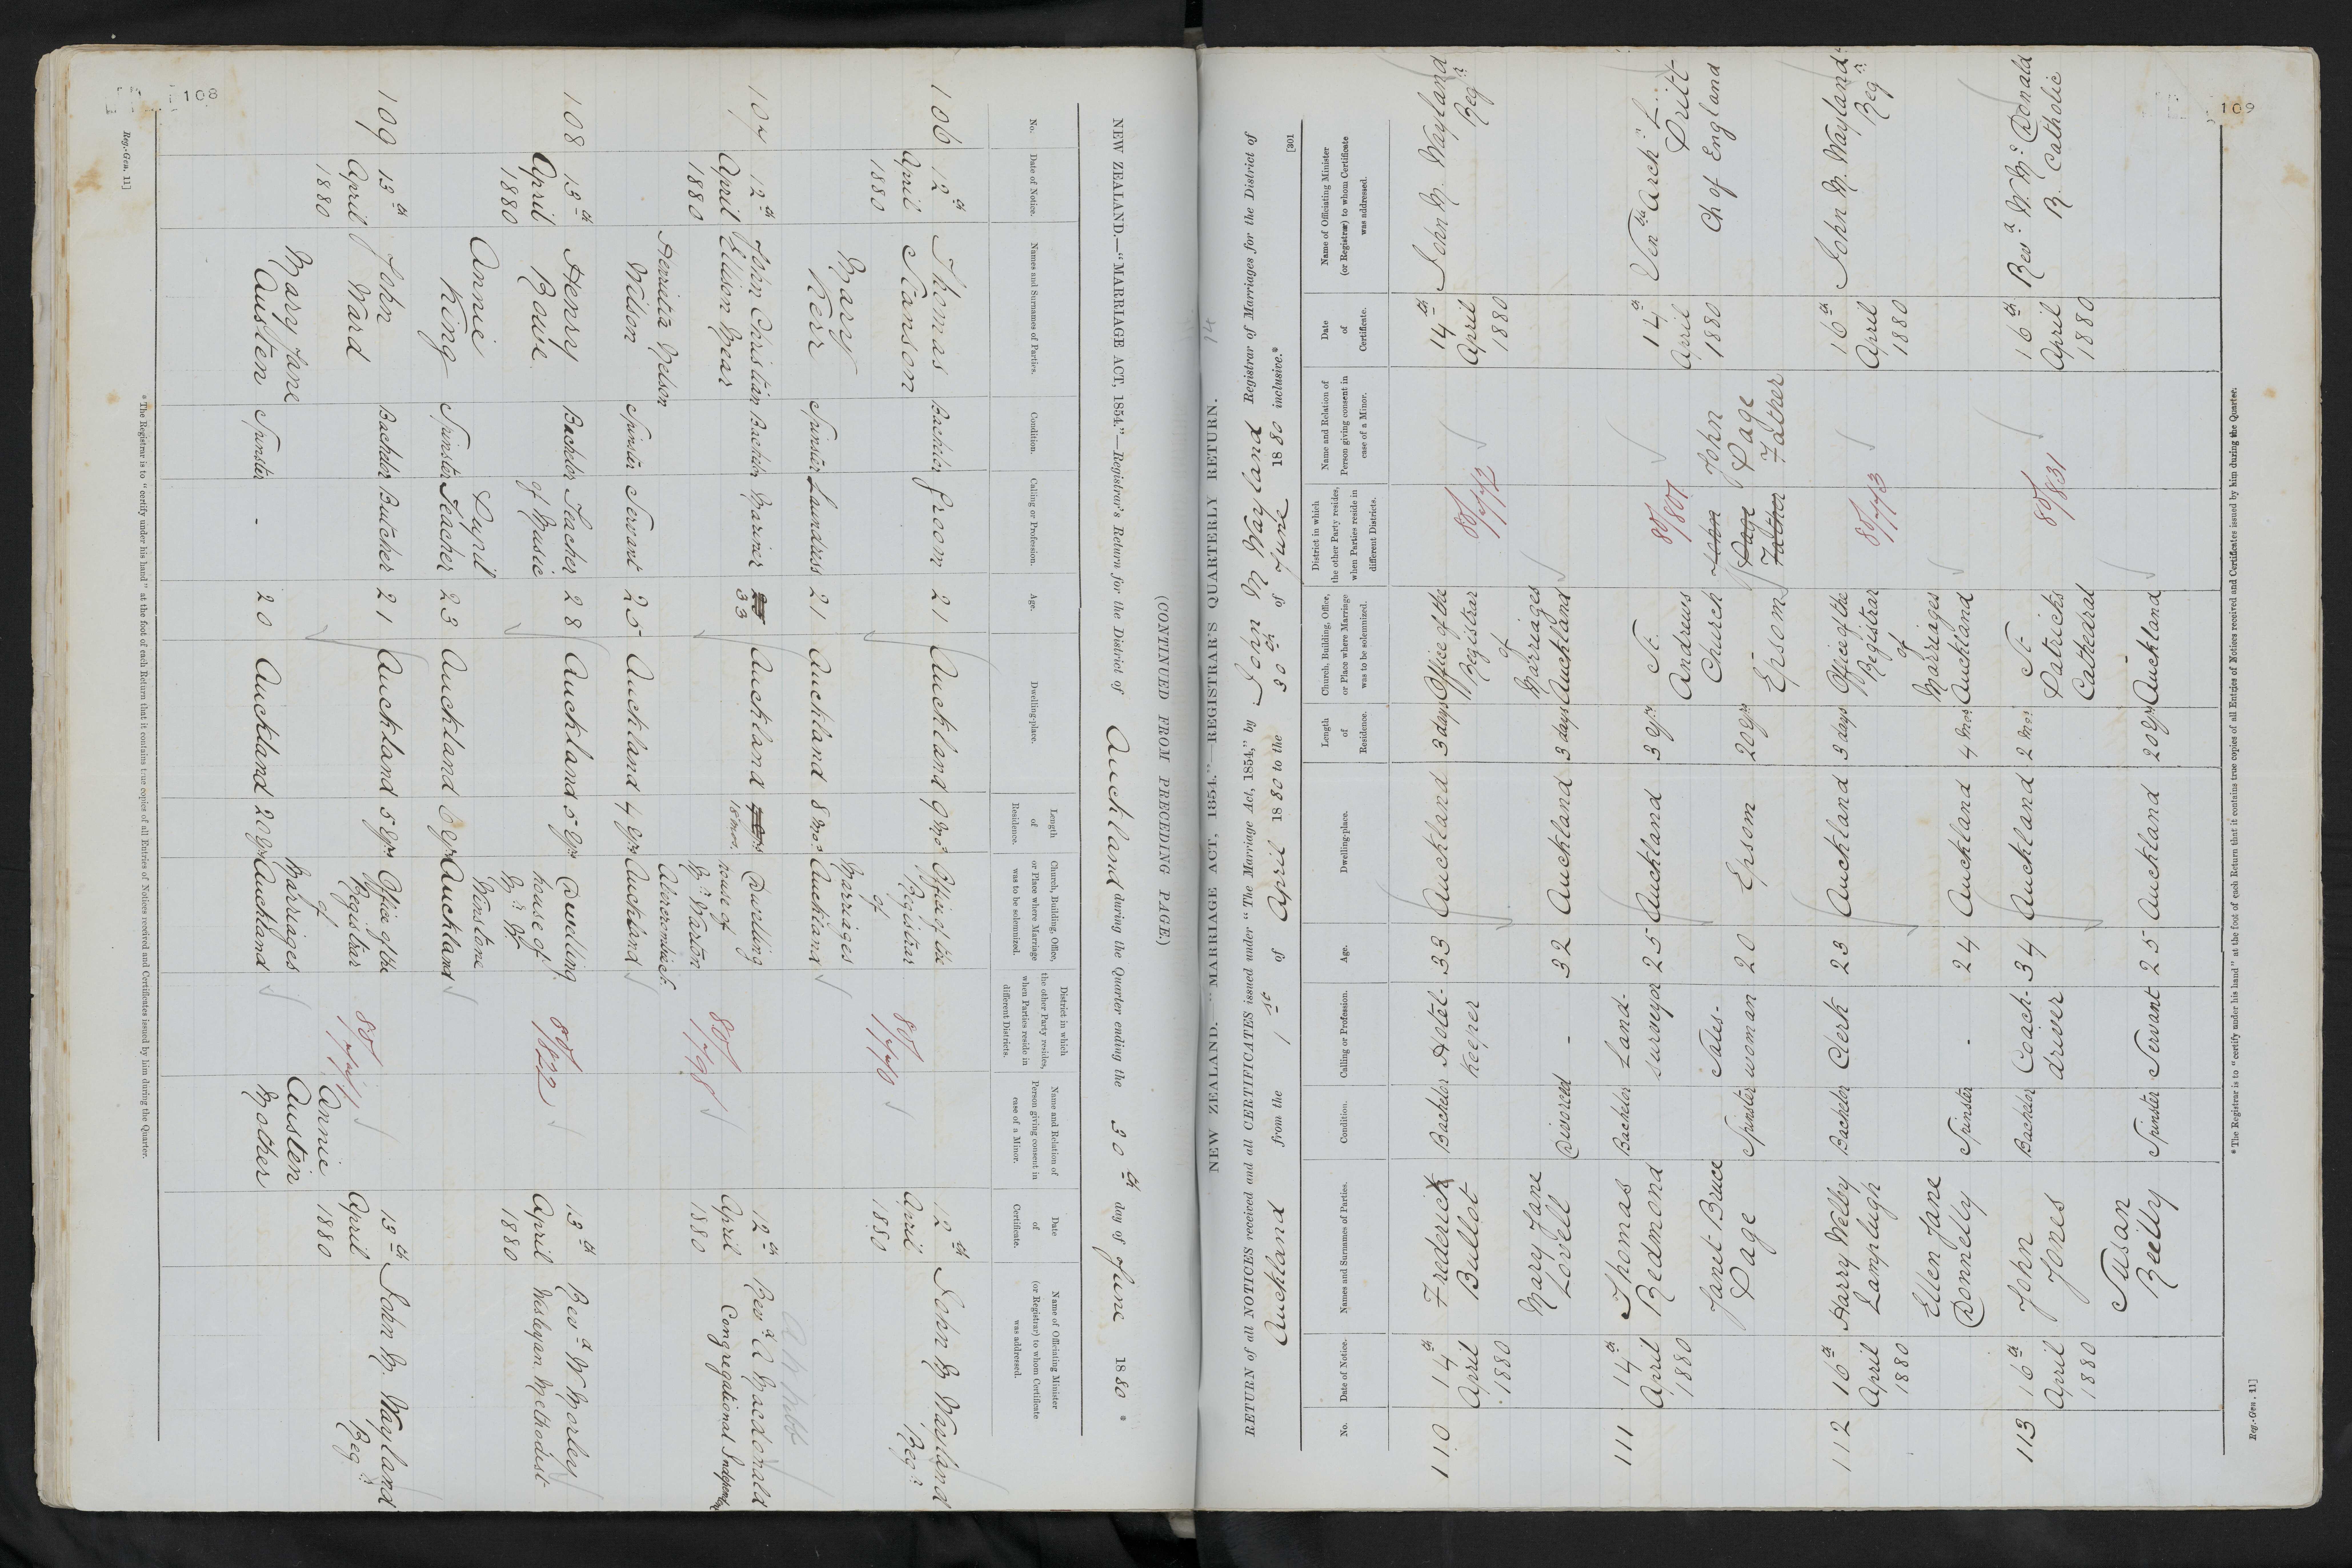 108
NEW ZEALAND.—"MARRIAGE ACT, 1854."—Registrar's Return for the District of Auckland during the Quarter ending the 30th day of June 1880 *
(CONTINUED FROM PRECEDING PAGE)
No. Date of Notice. Names and Surnames of Parties. Condition. Calling or Profession. Age. Dwelling-place. Length of Residence. Church, Building, Office, or Place where Marriage was to be solemnized. District in which the other Party resides, when Parties reside in different Districts. Name and Relation of Person giving consent in case of a Minor. Date of Certificate. Name of Officiating Minister (or Registrar) to whom Certificate was addressed.
106 12th April 1880 Thomas Scanson Bachelor Groom 21 Auckland 9 mos Office of the Registrar of Marriages Auckland 12th April 1880 John M. Wayland Regr
Mary Kerr Spinster Laundress 21 Auckland 8 mos
107 12th April 1880 John Christian Ellison Mear Bachelor Mariner 33 Auckland 18 mos. Dwelling house of Mr Warton Abercrombie St. Auckland 80/798 12th April 1880 Revd A Macdonald Congregational Independent
Henrietta Nelson Wilson Spinster Servant 25 Auckland 4 yrs
108 13th April 1880 Henry Rowe Bachelor Teacher of Music 28 Auckland 5 yrs Dwelling house of Mr W. Winstone Auckland 80/822 13th April 1880 Revd W Morley Wesleyan Methodist
Annie King Spinster Pupil Teacher 23 Auckland 6 yrs
109 13th April 1880 John Ward Bachelor Butcher 21 Auckland 5 yrs Office of the Registrar of Marriages Auckland Annie Austen Mother 13th April 1880 John M. Wayland Regr
Mary Jane Austen Spinster - 20 Auckland 20 yrs
* The Registrar is to "certify under his hand" at the foot of each Return that it contains true copies of all Entries of Notices received and Certificates issued by him during the Quarter.
Reg.-Gen. 11]
109
[301
NEW ZEALAND.—"MARRIAGE ACT, 1854."—REGISTRAR'S QUARTERLY RETURN. 14
RETURN of all NOTICES received and all CERTIFICATES issued under "The Marriage Act, 1854," by John M Wayland Registrar of Marriages for the District of
Auckland from the 1st of April 1880 to the 30th of June 1880 inclusive.*
No. Date of Notice. Names and Surnames of Parties. Condition. Calling or Profession. Age. Dwelling-place. Length of Residence. Church, Building, Office, or Place where Marriage was to be solemnized. District in which the other Party resides, when Parties reside in different Districts. Name and Relation of Person giving consent in case of a Minor. Date of Certificate. Name of Officiating Minister (or Registrar) to whom Certificate was addressed.
110 14th April 1880 Frederick Bullot Bachelor Hotel-keeper 33 Auckland 3 days Office of the Registrar of Marriages Auckland 80/772 14th April 1880 John M. Wayland Regr
Mary Jane Lovell Divorced - 32 Auckland 3 days
111 14th April 1880 Thomas Redmond Bachelor Land-surveyor 25 Auckland 3 yrs St. Andrews Church Epsom 80/807 John Page Father John Page Father 14th April 1880 Venble Archn Ch of England
Janet Bruce Page Spinster Sales-woman 20 Epsom 20 yrs
112 16th April 1880 Harry Welby Lamplugh Bachelor Clerk 23 Auckland 3 days Office of the Registrar of Marriages Auckland 80/773 16th April 1880 John M. Wayland Regr
Ellen Jane Donnelly Spinster - 24 Auckland 4 mos
113 16th April 1880 John Jones Bachelor Coach-driver 34 Auckland 2 mos St. Patricks Cathedral Auckland 80/831 16th April 1880 Revd W. McDonald R. Catholic
Susan Reilly Spinster Servant 25 Auckland 20 yrs
* The Registrar is to "certify under his hand" at the foot of each Return that it contains true copies of all Entries of Notices received and Certificates issued by him during the Quarter.
Reg.-Gen. 11]